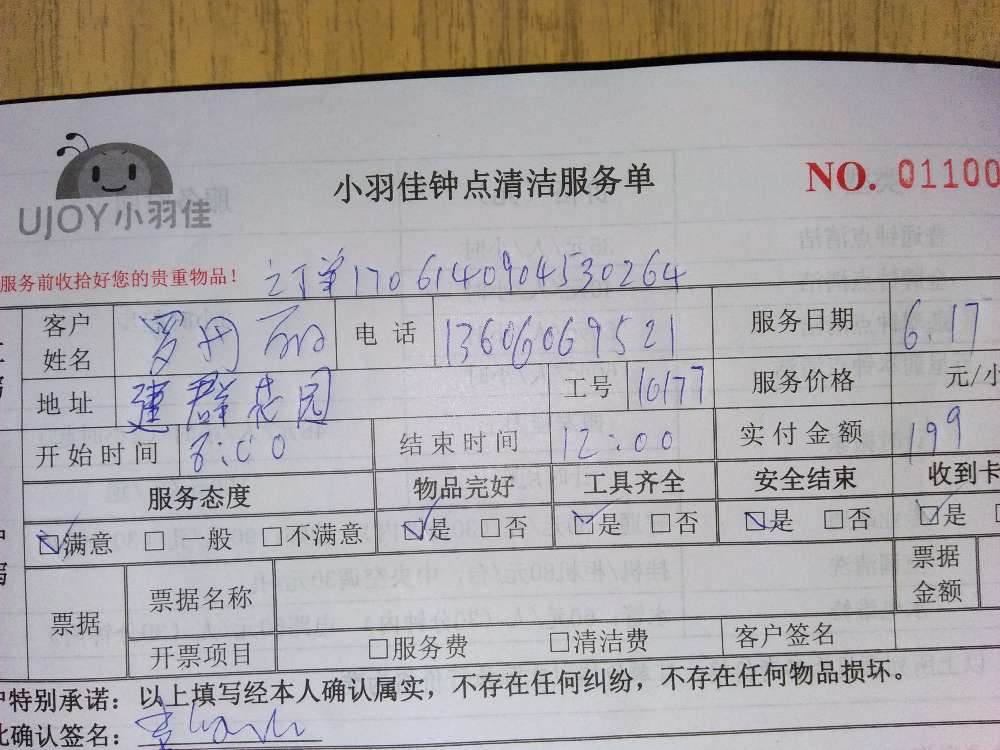 UJOY小羽佳
小羽佳钟点清洁服务单
NO. 01100
服务前收拾好您的贵重物品！ 订单1706140904530264
客户姓名 罗丹丽 电话 13606069521 服务日期 6.17
地址 建群花园 工号 10177 服务价格 元/小
开始时间 8:00 结束时间 12:00 实付金额 199
服务态度 物品完好 工具齐全 安全结束 收到卡
☑满意 □一般 □不满意 ☑是 □否 ☑是 □否 ☑是 □否 ☑是
票据 票据名称 票据金额
开票项目 □服务费 □清洁费 客户签名
特别承诺：以上填写经本人确认属实，不存在任何纠纷，不存在任何物品损坏。
确认签名：